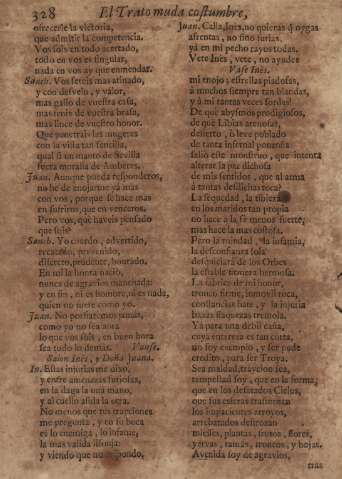 328 El Trato muda costumbre,
ofrecerle la victoria,
que admitir la competencia.
Vos sois en todo acertado,
todo en vos es singular,
nada en vos ay que enmendar.
Sanch. Vos sereis mas afinado,
y con desvelo, y valor,
mas gallo de vuestra casa,
mas tenis de vuestra brasa,
mas lince de vuestro honor.
Que penetrais las mugeres
con la vista tan sencilla,
qual si un manto de Sevilla
fuera moralla de Amberes.
Juan. Aunque pueda responderos,
no he de enojarme yà mas
con vos, porque se hace mas
en sufriros, que en venceros.
Pero vos, què haveis pensado
que sois?
Sanch. Yo cuerdo, advertido,
recatado, prevenido,
discreto, prudente, honrado.
En mi la honra naciò,
nunca de agravios manchada;
y en fin, ni es hombre, ni es nada,
quien no fuere como yo.
Juan. No porfiaremos jamàs,
como yo no sea aora
lo que vos sois, en buen hora
sea todo lo demàs. Vanse.
Salen Inès, y Doña Juana.
In. Estas injurias me dixo,
y entre amenazas furiosas,
en la daga la una mano,
y al cuello asida la otra.
No menos que tus trayciones
me pregunta, y en su boca
es lo enemiga, lo infame,
la mas valida lisonja:
y viendo que no respondo,
Juan. Calla, Inès, no quieras q̃ oygga
afrentas, no sino furias.
yà en mi pecho rayos todas.
Vete Inès, vete, no ayudes
Vase Inès.
mi enojo; estrellas piadosas,
à muchos siempre tan blandas,
y à mi tantas veces sordas!
De què abysmos prodigiosos,
de què Libias arenosas,
desierto, ò leve poblado
de tanta infernal ponzoña
saliò este monstruo, que intenta
alterar la paz dichosa
de mis sentidos, que al arma
à tantas desdichas toca?
La sequedad, la tibieza
en los maridos tan propia
no hace à la fè menos fuerte;
mas hace la mas costosa.
Pero la ruindad, la infamia,
la desconfianza sola
desquiciarà de los Orbes
la estable tionera hermosa.
La fabrica de mi honor,
tronco firme, inmovil roca,
confianzas hace, y la injuria
bazas flaquezas tremola.
Ya para una debil casa,
cuya entereza es tan corta,
no soy exemplo, y ser pude
credito, para ser Troya.
Sea maldad, traycion sea,
tempestad soy, que en la forma,
que en los desatados Cielos,
que sus esferas trastornan
los impacientes arroyos,
arrebatados destrozan
mieses, plantas, frutos, flores,
yervas, ramas, troncos, y hojas.
Avenida soy de agravios,
tras